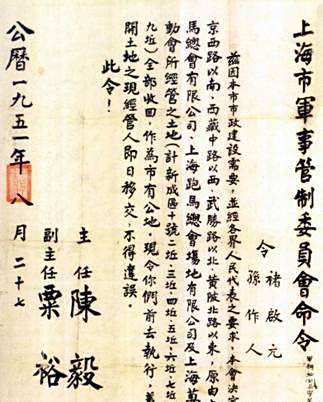 上海市軍事管制委員會命令
令 褚啟元
孫作人
茲因本市市政建設需要，並經各界人民代表之要求，本會決定
京西路以南、西藏中路以西、武勝路以北、黃陂北路以東，原由
馬總會有限公司、上海跑馬總會場地有限公司及上海
動會所經管之土地（計新成區十號二坵、三坵、四坵、五坵、六坵、七坵
九坵）全部收回，作為市有公地。現令你們前去執行，
開土地之現經管人即日移交，不得違誤。
此令！
主任 陳毅
副主任 粟裕
公曆一九五一年八月二十七